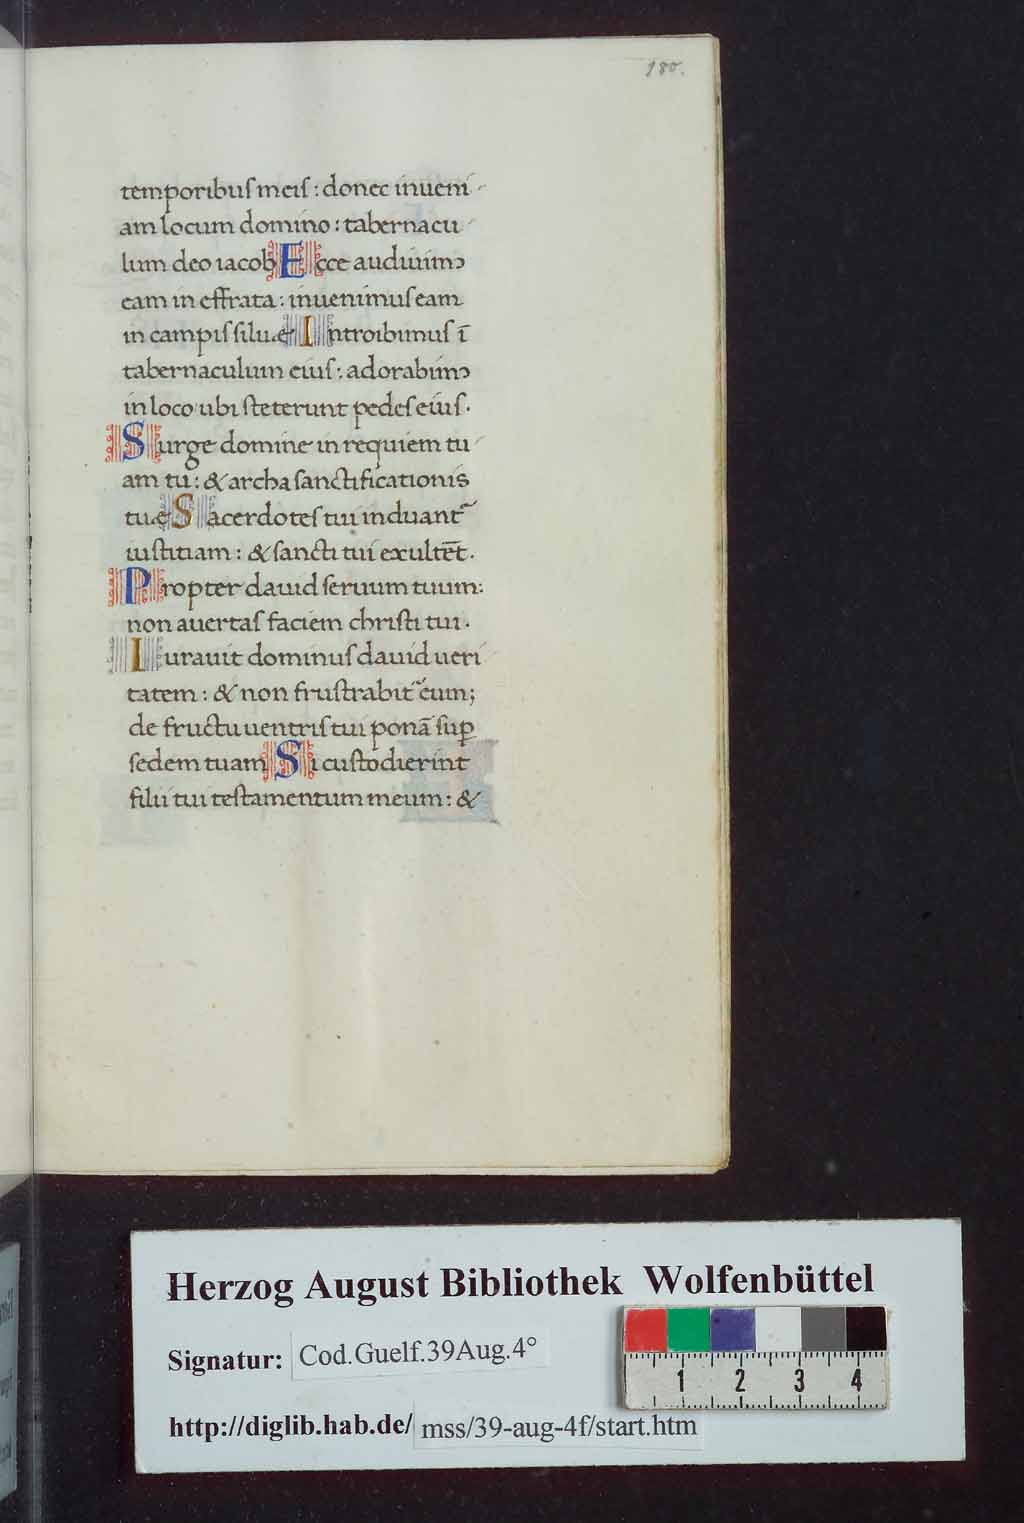 180.
temporibus meis : donec inueni-
am locum domino : tabernacu-
lum deo iacob Ecce audiuimꝰ
eam in effrata : inuenimus eam
in campis siluæ Introibimus ī
tabernaculum eius : adorabimꝰ
in loco ubi steterunt pedes eius.
Surge domine in requiem tu-
am tu : & archa sanctificationis
tuæ Sacerdotes tui induant᷑
iustitiam : & sancti tui exultēt.
Propter dauid seruum tuum :
non auertas faciem christi tui.
Iurauit dominus dauid ueri-
tatem : & non frustrabit᷑ eum;
de fructu uentris tui ponā suꝑ
sedem tuam Si custodierint
filii tui testamentum meum : &
Herzog August Bibliothek Wolfenbüttel
Signatur: Cod.Guelf.39Aug.4°
1 2 3 4
http://diglib.hab.de/ mss/39-aug-4f/start.htm